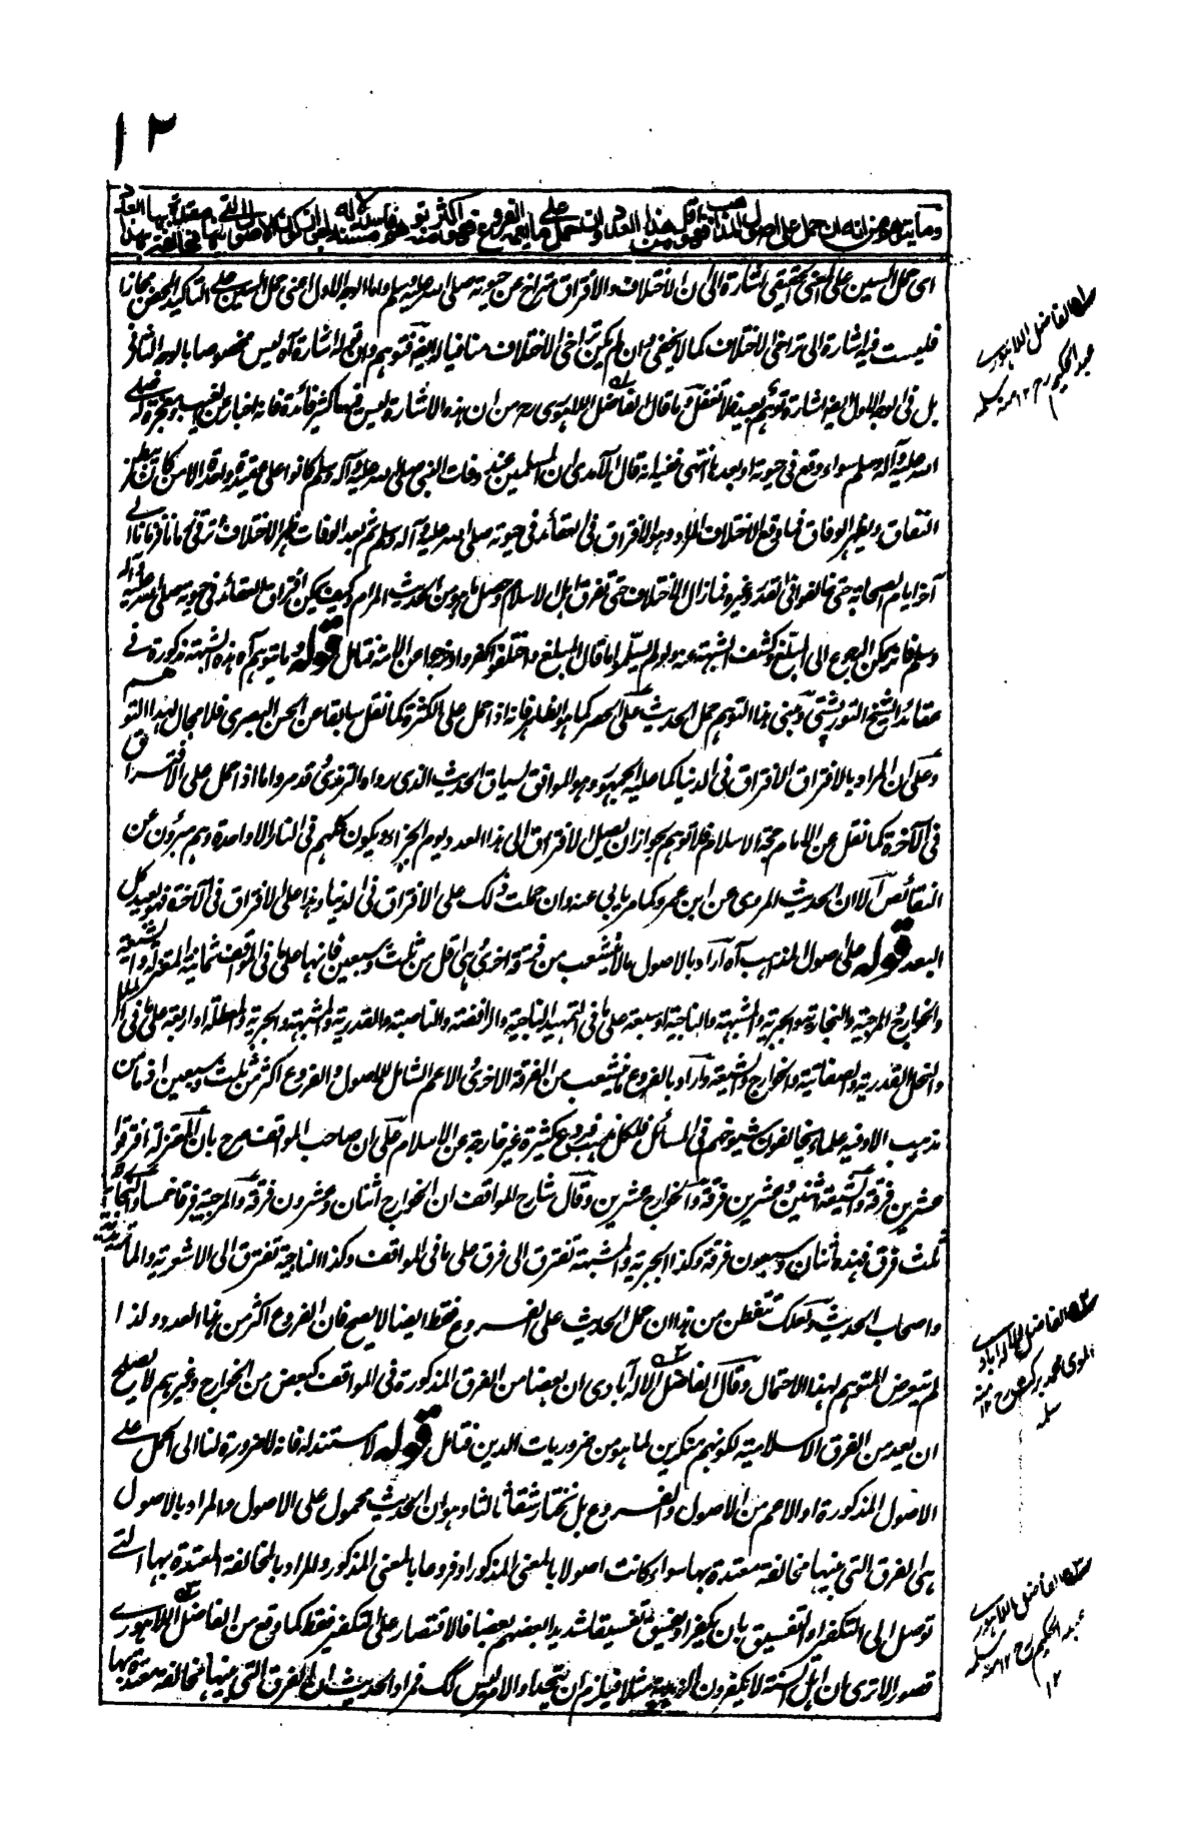 ١٢
وما يتوهم من انه ان حمل على اصول المذاهب فهي اقل من هذا العدد وان حمل على ما يعم الفروع فهي اكثر منه توهم لا مستند له لجواز ان يكون الاصول التي بينها مخالفة معتد بها بهذا العدد
اى حمل السين على المعنى الحقيقى اشارة الى ان الاختلاف والافتراق متراخ عن حيوته صلى الله عليه وسلم واما الوجه الاول اعنى حمل السين على التاكيد المحض مجازا
فليست فيه اشارة الى تراخى الاختلاف كما لا يخفى وان لم يكن تراخى الاختلاف منافيا له ايضا فتوهم وان قوله اشارة آه ليس مخصوصا بالوجه الثانى
بل فى الوجه الاول ايضا اشارة توهم بعيد فلا تغفل وما قال الفاضل اللاهورى رح من ان هذه الاشارة ليس فيها كثير فائدة فانه اخبار عن الغيب ومعجزة له صلى
الله عليه وآله وسلم سواء وقع فى حيوته او بعدها انتهى ففيه انه قال الآمدى ان المسلمين عند وفات النبى صلى الله عليه وآله وسلم كانوا على عقيدة واحدة الا من كان يبطن
النفاق ويظهر الوفاق فما وقع الاختلاف المراد وهو الافتراق فى العقائد فى حيوته صلى الله عليه وآله وسلم ثم بعد الوفات ظهر الاختلاف وترقى زمانا فزمانا الى
آخر ايام الصحابة حتى خالفوا فى القدر وغيره فما زال الاختلاف حتى تفرق اهل الاسلام وحصل ما هو من الحديث المرام وكيف يمكن افتراق العقائد فى حيوته صلى الله عليه وآله
وسلم فانه يمكن الرجوع الى المبلغ وكشف الشبهة عنه ولو لم يسلموا ما قال المبلغ واختلفوا كفروا وخرجوا من الامة فتامل قوله وما يتوهم آه هذه الشبهة مذكورة فى
عقائد الشيخ التورپشتى ومبنى هذا التوهم حمل الحديث على الحصر كما هو الظاهر فانه اذا حمل على الكثرة كما نقل سابقا عن الحسن البصرى فلا مجال لهذا التوهم
وعلى ان المراد بالافتراق الافتراق فى الدنيا كما عليه الجمهور وهو الموافق لسياق الحديث الذى رواه الترمذى وقد مر واما اذا حمل على الافتراق
فى الآخرة كما نقل عن الامام حجة الاسلام فلا توهم لجواز ان يصل الافتراق الى هذا العدد يوم الجزاء ويكون كلهم فى النار الا واحدة وهم مبرؤن عن
النقائص الا ان الحديث المروى عن ابن عمرو كما مر يابى عنه وان حملت ذلك على الافتراق فى الدنيا وهذا على الافتراق فى الآخرة فهو بعيد كل
البعد قوله على اصول المذاهب آه اراد بالاصول ما لا يتشعب من فرقة اخرى وهى اقل من ثلث وسبعين فانها على ما فى المواقف ثمانية المعتزلة والشيعة
والخوارج والمرجية والنجارية والجبرية والمشبهة والناجية او سبعة على ما فى التمهيد الناجية والرافضة والناصبة والقدرية والمشبهة والجبرية والمعطلة او اربعة على ما فى الملل
والنحل القدرية والصفاتية والخوارج والشيعة واراد بالفروع ما يتشعب من الفرقة الاخرى والاعم الشامل للاصول والفروع اكثر من ثلث وسبعين اذ ما من
مذهب الا وفيه علماء يخالفون شيوخهم فى المسائل فلكل مذهب فروع كثيرة غير خارجة عن الاسلام على ان صاحب المواقف صرح بان المعتزلة افترقوا
عشرين فرقة والشيعة اثنين وعشرين فرقة والخوارج عشرين وقال شارح المواقف ان الخوارج اثنان وعشرون فرقة والمرجية فرقا خمسا والنجارية
ثلث فرق فهذه اثنان وسبعون فرقة وكذا الجبرية والمشبهة تفترق الى فرق على ما فى المواقف وكذا الناجية تفترق الى الاشعرية والماتريدية
واصحاب الحديث ولعلك تتفطن من هذا ان حمل الحديث على الفروع فقط ايضا لا يصح فان الفروع اكثر من هذا العدد ولذا
لم يتعرض المتوهم لهذا الاحتمال وقال الفاضل الاله آبادى ان بعضا من الفرق المذكورة فى المواقف كبعض من الخوارج وغيرهم لا يصلح
ان يعد من الفرق الاسلامية لكونهم منكرين لما هو من ضروريات الدين فتامل قوله لا مستند له فانه لا ضرورة لنا الى الحمل على
الاصول المذكورة او الاعم من الاصول والفروع بل نختار شقا ثالثا وهو ان الحديث محمول على الاصول والمراد بالاصول
هى الفرق التى بينها مخالفة معتدة بها سواء كانت اصولا بالمعنى المذكور او فروعا بالمعنى المذكور والمراد بالمخالفة المعتدة بها التى
توصل الى التكفير او التفسيق بان يكفر او يفسق تفسيقا شديدا بعضهم بعضا فالاقتصار على التكفير فقط كما وقع من الفاضل اللاهورى
قصور الا ترى ان اهل السنة لا يكفرون مثلا فيلزم ان يتحدا والامر ليس كذلك فمراد الحديث ان الفرق التى بينها مخالفة معتدة بها
الفاضل اللاهورى
عبد الحكيم رح ١٢ منه سلمه
الفاضل الاله آبادى
المولوى محمد بركت رح ١٢ منه
سلمه
الفاضل اللاهورى
عبد الحكيم رح ١٢ منه سلمه
١٢